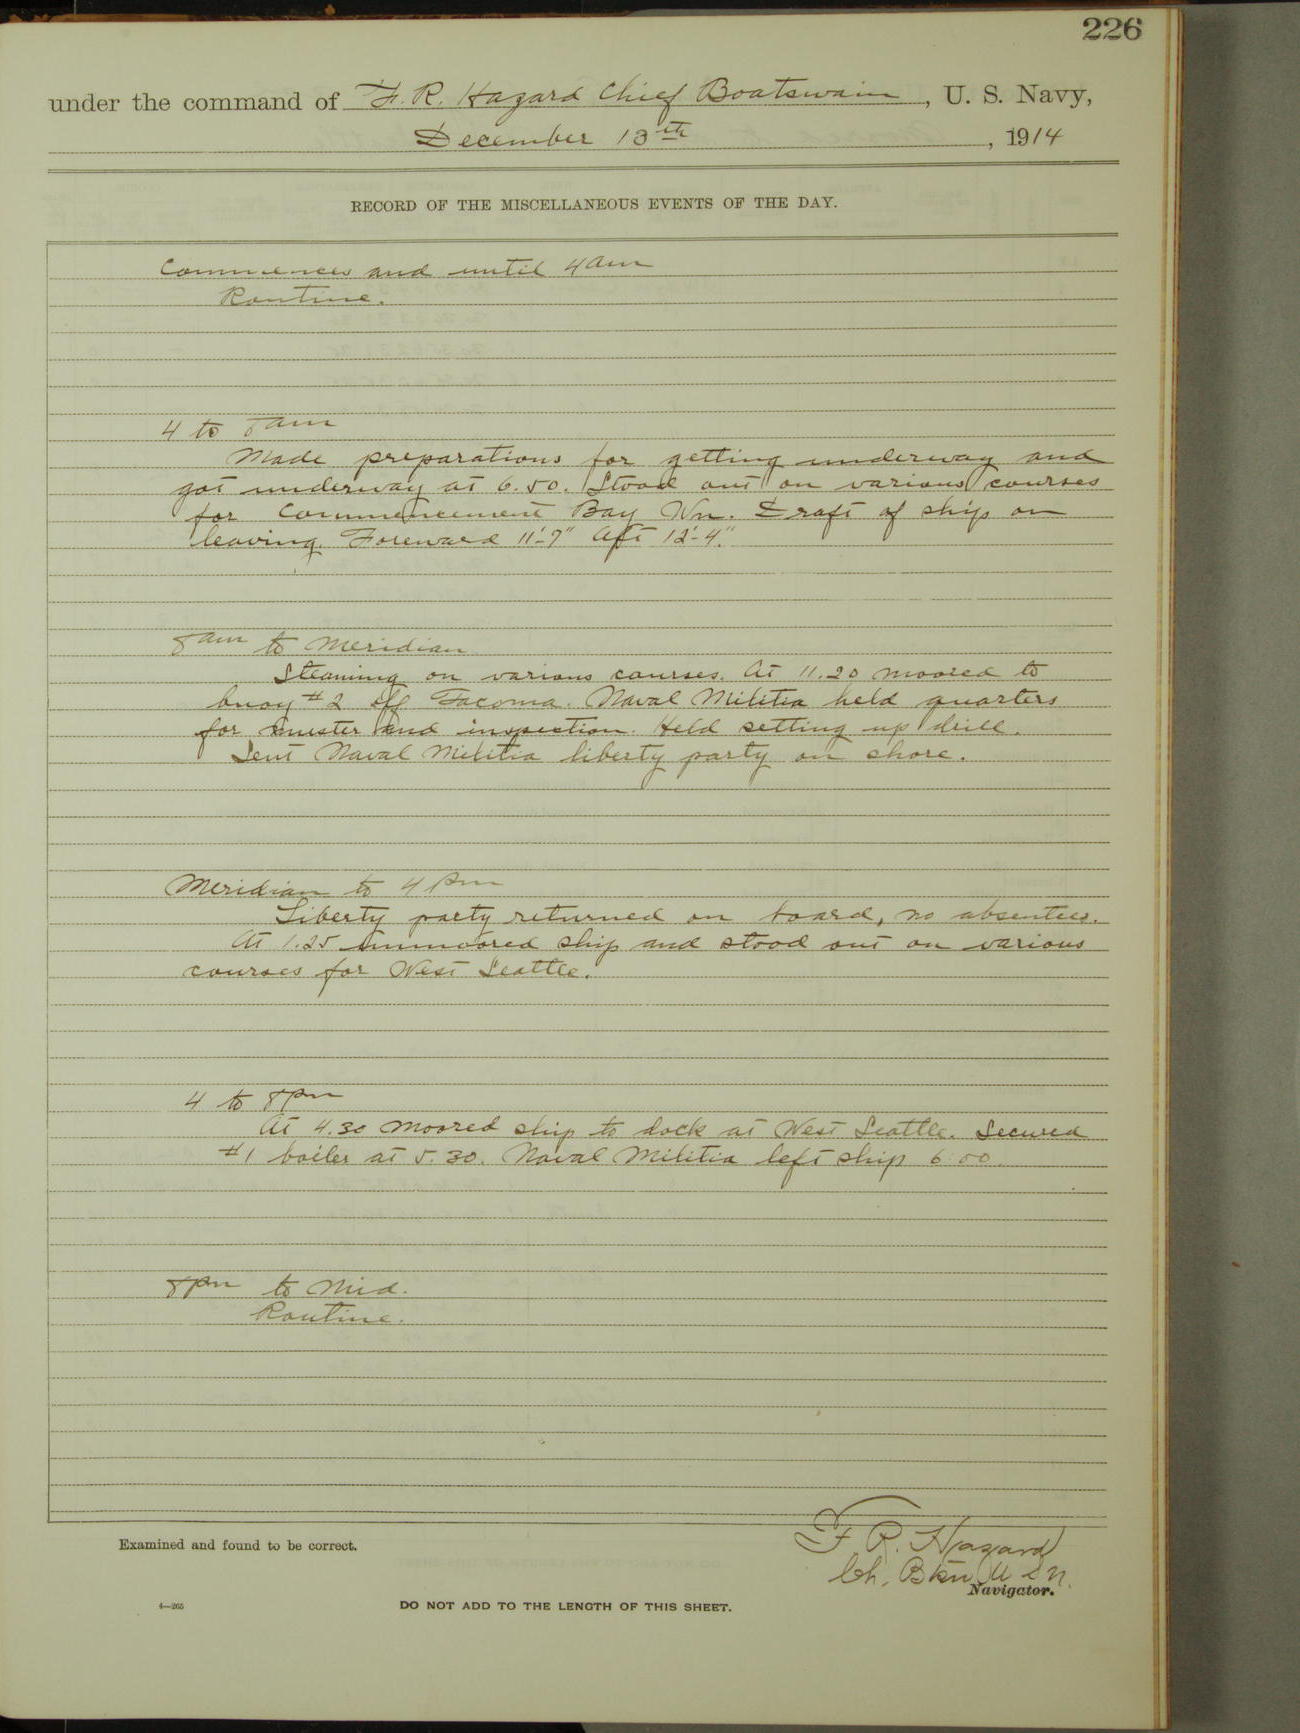 226
under the command of F. R. Hazard Chief Boatswain, U. S. Navy,
December 13th, 1914
RECORD OF THE MISCELLANEOUS EVENTS OF THE DAY.
Commences and until 4 am
Routine.
4 to 8 am
Made preparations for getting underway and
got underway at 6.50. Stood out on various courses
for Commencement Bay Wn. Draft of ship on
leaving. Foreward 11'-7" Aft 12'-4".
8 am to Meridian
Steaming on various courses. At 11.20 moored to
buoy #2 off Tacoma. Naval Militia held quarters
for muster and inspection. Held setting up drill.
Sent Naval Militia liberty party on shore.
Meridian to 4 pm
Liberty party returned on board, no absentees.
At 1.25 unmoored ship and stood out on various
courses for West Seattle.
4 to 8 pm
At 4.30 moored ship to dock at West Seattle. Secured
#1 boiler at 5.30. Naval Militia left ship 6:00.
8 pm to Mid.
Routine.
Examined and found to be correct.
F R. Hazard
Ch. Btsn U S N.
Navigator.
4—265
DO NOT ADD TO THE LENGTH OF THIS SHEET.